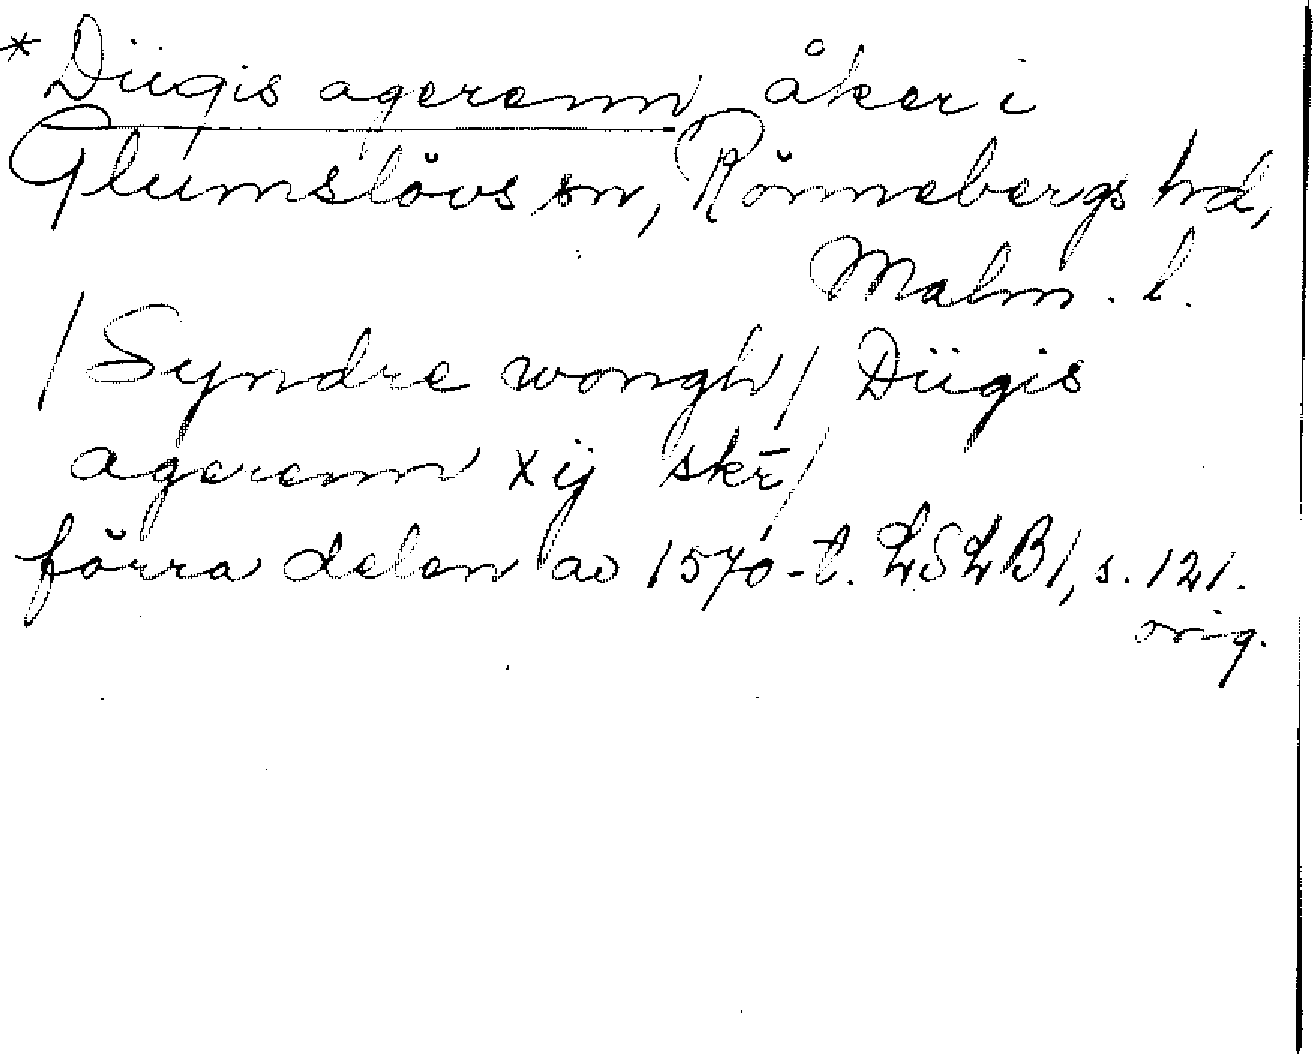 *Dügis agerenn åker i
Glumslövs sn, Rönnebergs hd,
Malm. l.
/Syndre wongh/ Dügis
agerenn xij skr̄/
förra delen av 1570-t. LSLB1, s. 121.
orig.